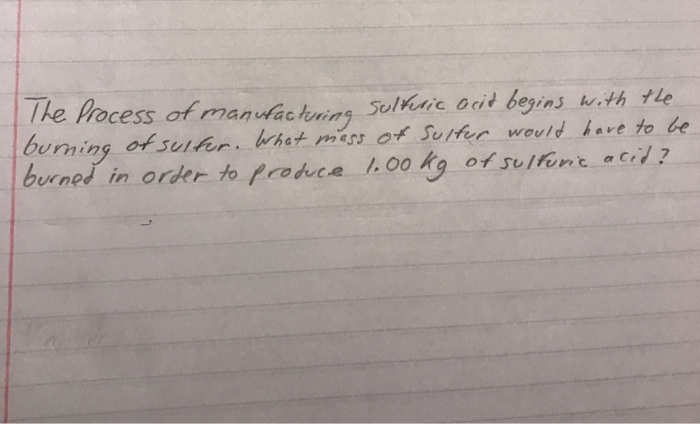 The Process of manufacturing Sulfuric acid begins with the
burning of sulfur. What mass of Sulfur would have to be
burned in order to produce 1.00 Kg of sulfuric acid?